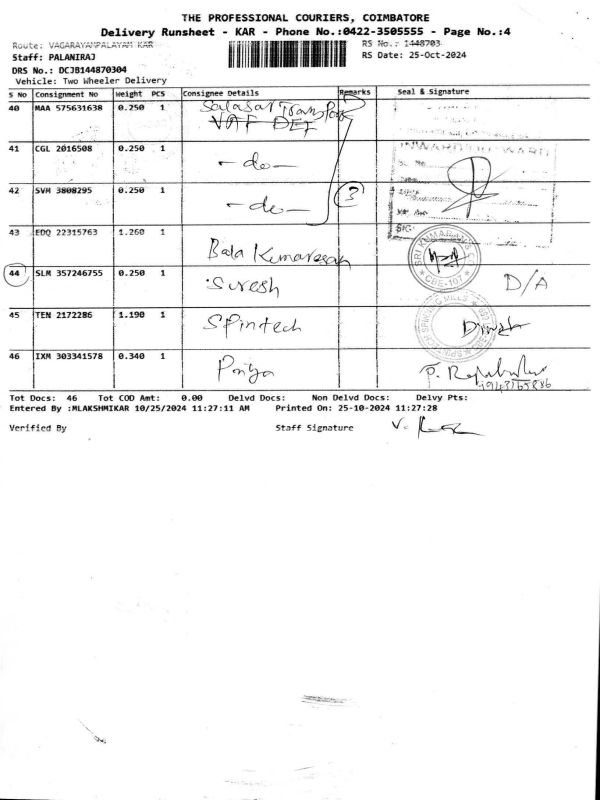 THE PROFESSIONAL COURIERS, COIMBATORE
Delivery Runsheet - KAR - Phone No.:0422-3505555 - Page No.:4
Route: VAGARAYANPALAYAM KAR RS No.: 1448703
Staff: PALANIRAJ RS Date: 25-Oct-2024
DRS No.: DCJB144870304
Vehicle: Two Wheeler Delivery
S No Consignment No Weight PCS Consignee Details Remarks Seal & Signature
40 MAA 575631638 0.250 1 Salasar Transport
41 CGL 2016508 0.250 1 - do - INWARD
42 SVM 3808295 0.250 1 - do - 3
43 EDQ 22315763 1.260 1 Bala Kumaresan SRI KUMARAN CBE-107
44 SLM 357246755 0.250 1 Suresh D/A
45 TEN 2172286 1.190 1 Spintech SPINNING MILLS
46 IXM 303341578 0.340 1 Priya
Tot Docs: 46 Tot COD Amt: 0.00 Delvd Docs: Non Delvd Docs: Delvy Pts:
Entered By :MLAKSHMIKAR 10/25/2024 11:27:11 AM Printed On: 25-10-2024 11:27:28
Verified By Staff Signature